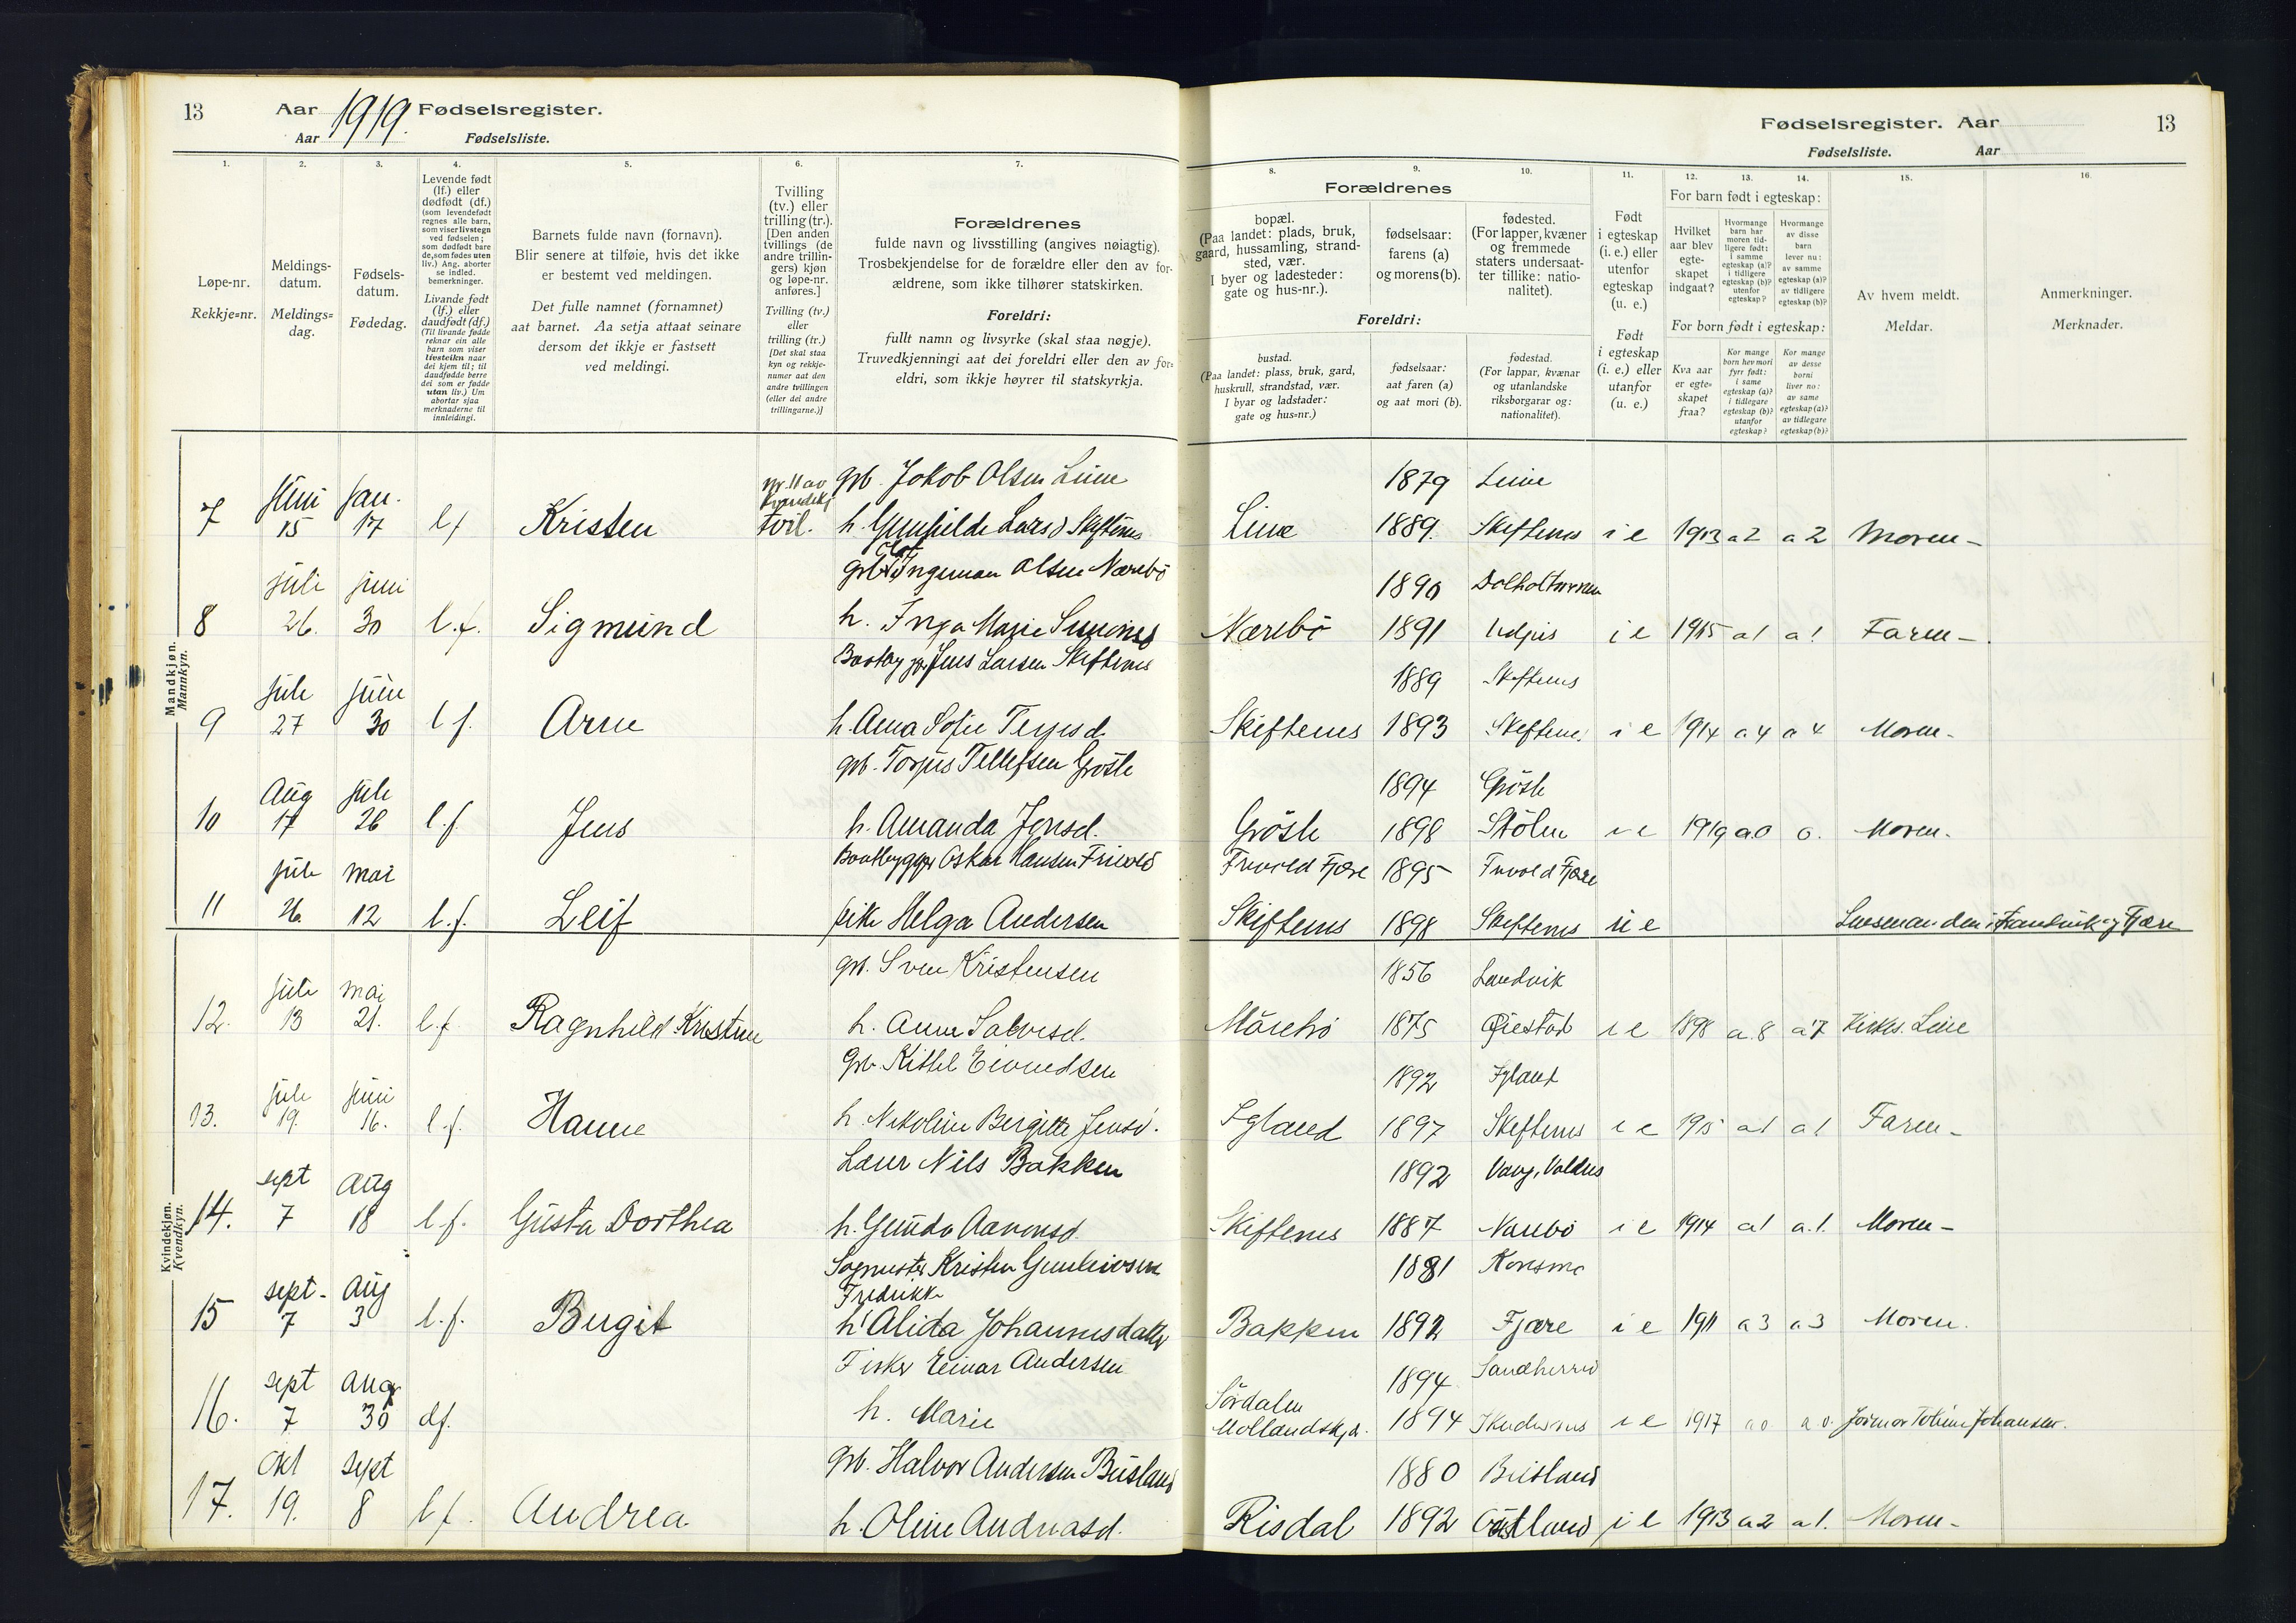 13 Aar 1919. Fødselsregister.
Aar Fødselsliste.
Fødselsregister. Aar 13
Fødselsliste. Aar
1. 2. 3. 4. 5. 6. 7.
Løpe-nr.
Rekkje=nr.
Meldings-
datum.
Meldings=
dag.
Fødsels-
datum.
Fødedag.
Levende født
(lf.) eller
dødfødt (df.)
(som levendefødt
regnes alle barn,
som viser livstegn
ved fødselen;
som dødfødt bare
de, som fødes uten
liv.) Ang. aborter
se indled.
bemerkninger.
Livande født
(lf.) eller
daudfødt (df.)
(Til livande fødde
reknar ein alle
barn som viser
livsteikn naar
dei kjem til; til
daudfødde berre
dei som er fødde
utan liv.) Um
abortar sjaa
merknaderne til
innleidingi.
Barnets fulde navn (fornavn).
Blir senere at tilføie, hvis det ikke
er bestemt ved meldingen.
Det fulle namnet (fornamnet)
aat barnet. Aa setja attaat seinare
dersom det ikkje er fastsett
ved meldingi.
Tvilling
(tv.) eller
trilling (tr.).
[Den anden
tvillings (de
andre trillin-
gers) kjøn
og løpe-nr.
anføres.]
Tvilling (tv.)
eller
trilling (tr.)
[Det skal staa
kyn og rekkje-
numer aat den
andre tvillingen
(eller dei andre
trillingarne.)]
Forældrenes
fulde navn og livsstilling (angives nøiagtig).
Trosbekjendelse for de forældre eller den av for-
ældrene, som ikke tilhører statskirken.
Foreldri:
fullt namn og livsyrke (skal staa nøgje).
Truvedkjenningi aat dei foreldri eller den av for=
eldri, som ikkje høyrer til statskyrkja.
8. 9. 10. 11. 12. 13. 14. 15. 16.
Forældrenes
bopæl.
(Paa landet: plads, bruk,
gaard, hussamling, strand-
sted, vær.
I byer og ladesteder:
gate og hus-nr.).
fødselsaar:
farens (a)
og morens (b).
fødested.
(For lapper, kvæner
og fremmede
staters undersaat-
ter tillike: natio-
nalitet).
Foreldri:
bustad.
(Paa landet: plass, bruk, gard,
huskrull, strandstad, vær.
I byar og ladstader:
gate og hus=nr.)
fødselsaar:
aat faren (a)
og aat mori (b).
fødestad.
(For lappar, kvænar
og utanlandske
riksborgarar og:
nationalitet).
Født
i egteskap
(i. e.) eller
utenfor
egteskap
(u. e.)
Født
i egteskap
(i. e.) eller
utanfor
(u. e.)
For barn født i egteskap:
Hvilket
aar blev
egte-
skapet
indgaat?
Hvormange
barn har
moren tid-
ligere født:
i samme
egteskap (a)?
i tidligere
egteskap (b)?
utenfor
egteskap?
Hvormange
av disse
barn
lever nu:
av samme
egteskap (a)?
av tidligere
egteskap (b)?
For born født i egteskap:
Kva aar
er egte=
skapet
fraa?
Kor mange
born hev mori
fyrr født:
i same
egteskap (a)?
i tidlegare
egteskap (b)?
utanfor
egteskap?
Kor mange
av desse
borni
liver no:
av same
egteskap (a)?
av tidlegare
egteskap (b)?
Av hvem meldt.
Meldar.
Anmerkninger.
Merknader.
Mandkjøn.
Mannkyn.
juni jan. nr. 11 av grb. Jakob Olsen Leire 1879 Leire
7 15 17 l.f. Kristen tvil. h. Gunhilde Larsd Skiftenes 1889. Skiftenes i e 1913 a 2 a 2 Moren -
Olaf
juli juni grb. Ingeman Olsen Nærebö 1890 Dalholt
8 26. 30 l.f. Sigmund h. Inga Marie Nærebö 1891 i e 1915 a 1 a 1. Faren -
juli juni Baatbygger Jens Larsen Skiftenes 1889 Skiftenes
9 27 30 l.f. Arne h. Anna Sofie Terjesd. Skiftenes 1893 Skiftenes i e 1914 a 4 a 4 Moren -
Aug juli grb. Torjus Tellefsen Grösle 1894 Grösle
10 17 26 l.f. Jens h. Amanda Jensd. Grösle 1898 Stölen i e 1919 a.0 0. Moren.
juli mai Baatbygger Oskar Hansen Frivold Frivold Fjære 1895 Frivold Fjære
11 26 12 l.f. Leif pike Helga Andersen Skiftenes 1898 Skiftenes u e Lensmanden i Landvik og Fjære
Kvindekjøn.
Kvendkyn.
juli mai grb. Sven Kristensen 1856 Landvik
12. 13 21. l.f. Ragnhild Kristine h. Anne Salvesd. 1875 Øiestad i e 1898 a. 8 a 7 Kirkes. Leire
juli juni grb. Kittel Eivindsen 1892 Igland
13. 19. 16. l.f. Hanne h. Nikoline Bergitte Jensd. Igland 1897 Skiftenes i e 1915 a 1 a 1 Faren -
sept aug Lærer Nils Bakken 1892 Vang, Valdres
14. 7 18 l.f. Gusta Dorthea h. Gunda Aanonsd. Skiftenes 1887 Nærebö i e 1914 a 1 a. 1. Moren -
sept - Aug Kristen Gunleivsen 1881 Konsmo
Fredrikke
15 7 3 l.f. Birgit h. Alida Johannesdatter Bakken 1892 Fjære i e 1911 a 3 a 3 Moren.
sept Aug Fisker Einar Andersen 1894 Sandherred
16. 7 30 df. h. Marie Sördalen 1894 Skudesnes i e 1917 a 0 a 0. Jormor Johansen.
Okt sept grb. Halvor Andersen Büsland 1880 Büsland
17. 19. 8 l.f. Andrea h. Oline Andreasd. Risdal 1892 i e 1913 a 2 a 1. Moren -